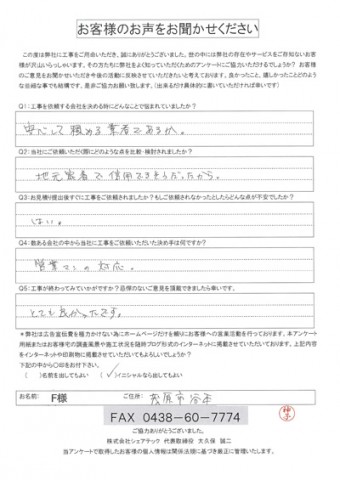 お客様のお声をお聞かせください
この度は弊社に工事をご用命いただき、誠にありがとうございました。世の中には弊社の存在やサービスをご存知ないお客
様が沢山いらっしゃいます。その方たちに弊社をよく知っていただくためのアンケートにご協力いただけるでしょうか？ お客様
のご意見をお聞かせいただき今後の活動に反映させていただきたいと考えております。良かったこと、嬉しかったことどのよう
な些細な事でも結構です。是非ご協力お願い致します。（出来るだけ具体的に書いていただければ幸いです）
Q1：工事を依頼する会社を決める時にどんなことで悩まれていましたか？
安心して頼める業者であるか。
Q2：当社にご依頼いただく際にどのような点を比較・検討されましたか？
地元業者で信用できそうだったから。
Q3：お見積り提出後すぐに工事をご依頼されましたか？もしご依頼されなかったとしたらどんな点が不安でしたか？
はい。
Q4：数ある会社の中から当社に工事をご依頼いただいた決め手は何ですか？
営業マンの対応。
Q5：工事が終わってみていかがですか？忌憚のないご意見を頂戴できましたら幸いです。
とても良かったです。
＊弊社は広告宣伝費を極力かけない為にホームページだけを頼りにお客様への営業活動を行っております。本アンケート
用紙またはお客様宅の調査風景や施工状況を随時ブログ形式のインターネットに掲載させていただいております。上記内容
をインターネットや印刷物に掲載させていただいてもよろしいでしょうか？
下記の中から○印をお付け下さい。
（　）名前を出してもよい　（✓）イニシャルなら出してもよい
お名前： F様 ご住所： 茂原市
FAX 0438-60-7774
ご協力ありがとうございました。
株式会社シェアテック 代表取締役 大久保 誠二
当アンケートで取得したお客様の個人情報は関係法令に基づき厳正に管理いたします。